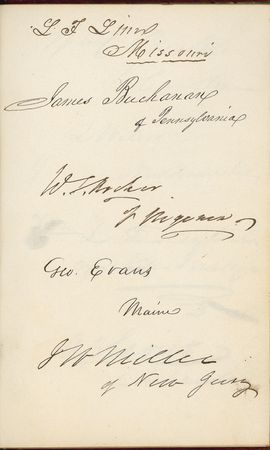 L F Linn
Missouri
James Buchanan
of Pennsylvania
W. S. Archer
of Virginia
Geo. Evans
Maine
J W Miller
of New Jersey